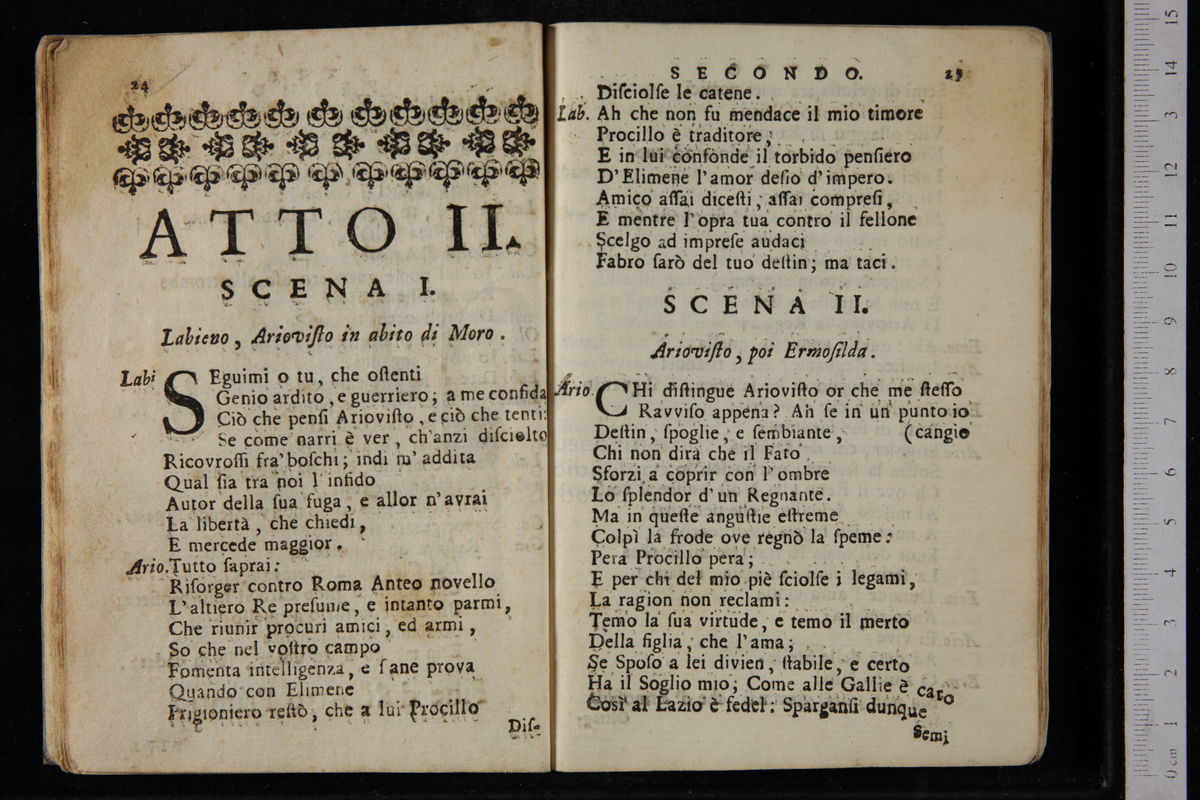 24
ATTO II.
SCENA I.
Labieno, Ariovisto in abito di Moro.
Labi SEguimi o tu, che ostenti
Genio ardito, e guerriero; a me confida
Ciò che pensi Ariovisto, e ciò che tenti:
Se come narri è ver, ch'anzi disciolto
Ricovrossi fra' boschi; indi m' addita
Qual sia tra noi l' infido
Autor della sua fuga, e allor n'avrai
La libertà, che chiedi,
E mercede maggior.
Ario. Tutto saprai:
Risorger contro Roma Anteo novello
L'altiero Re presume, e intanto parmi,
Che riunir procuri amici, ed armi,
So che nel vostro campo
Fomenta intelligenza, e sane prova
Quando con Elimene
Prigioniero restò, che a lui Procillo
Dis-
SECONDO. 25
Disciolse le catene.
Lab. Ah che non fu mendace il mio timore
Procillo è traditore,
E in lui confonde il torbido pensiero
D'Elimene l'amor desio d'impero.
Amico assai dicesti, assai compresi,
E mentre l'opra tua contro il fellone
Scelgo ad imprese audaci
Fabro sarò del tuo destin; ma taci.
SCENA II.
Ariovisto, poi Ermosilda.
Ario. CHi distingue Ariovisto or che me stesso
Ravviso appena? Ah se in un punto io
Destin, spoglie, e sembiante, (cangio
Chi non dirà che il Fato
Sforzi a coprir con l'ombre
Lo splendor d'un Regnante.
Ma in queste angustie estreme
Colpì la frode ove regnò la speme:
Pera Procillo pera;
E per chi del mio piè sciolse i legami,
La ragion non reclami:
Temo la sua virtude, e temo il merto
Della figlia, che l'ama;
Se Sposo a lei divien, stabile, e certo
Ha il Soglio mio; Come alle Gallie è caro
Così al Lazio è fedel: Spargansi dunque
Semi